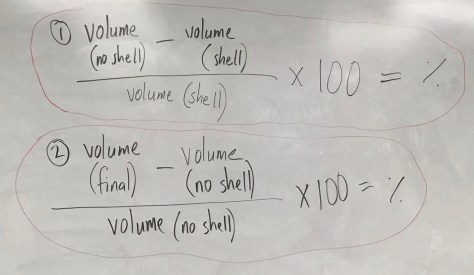 ① volume (no shell) − volume (shell)
volume (shell)
× 100 = %
② volume (final) − volume (no shell)
volume (no shell)
× 100 = %